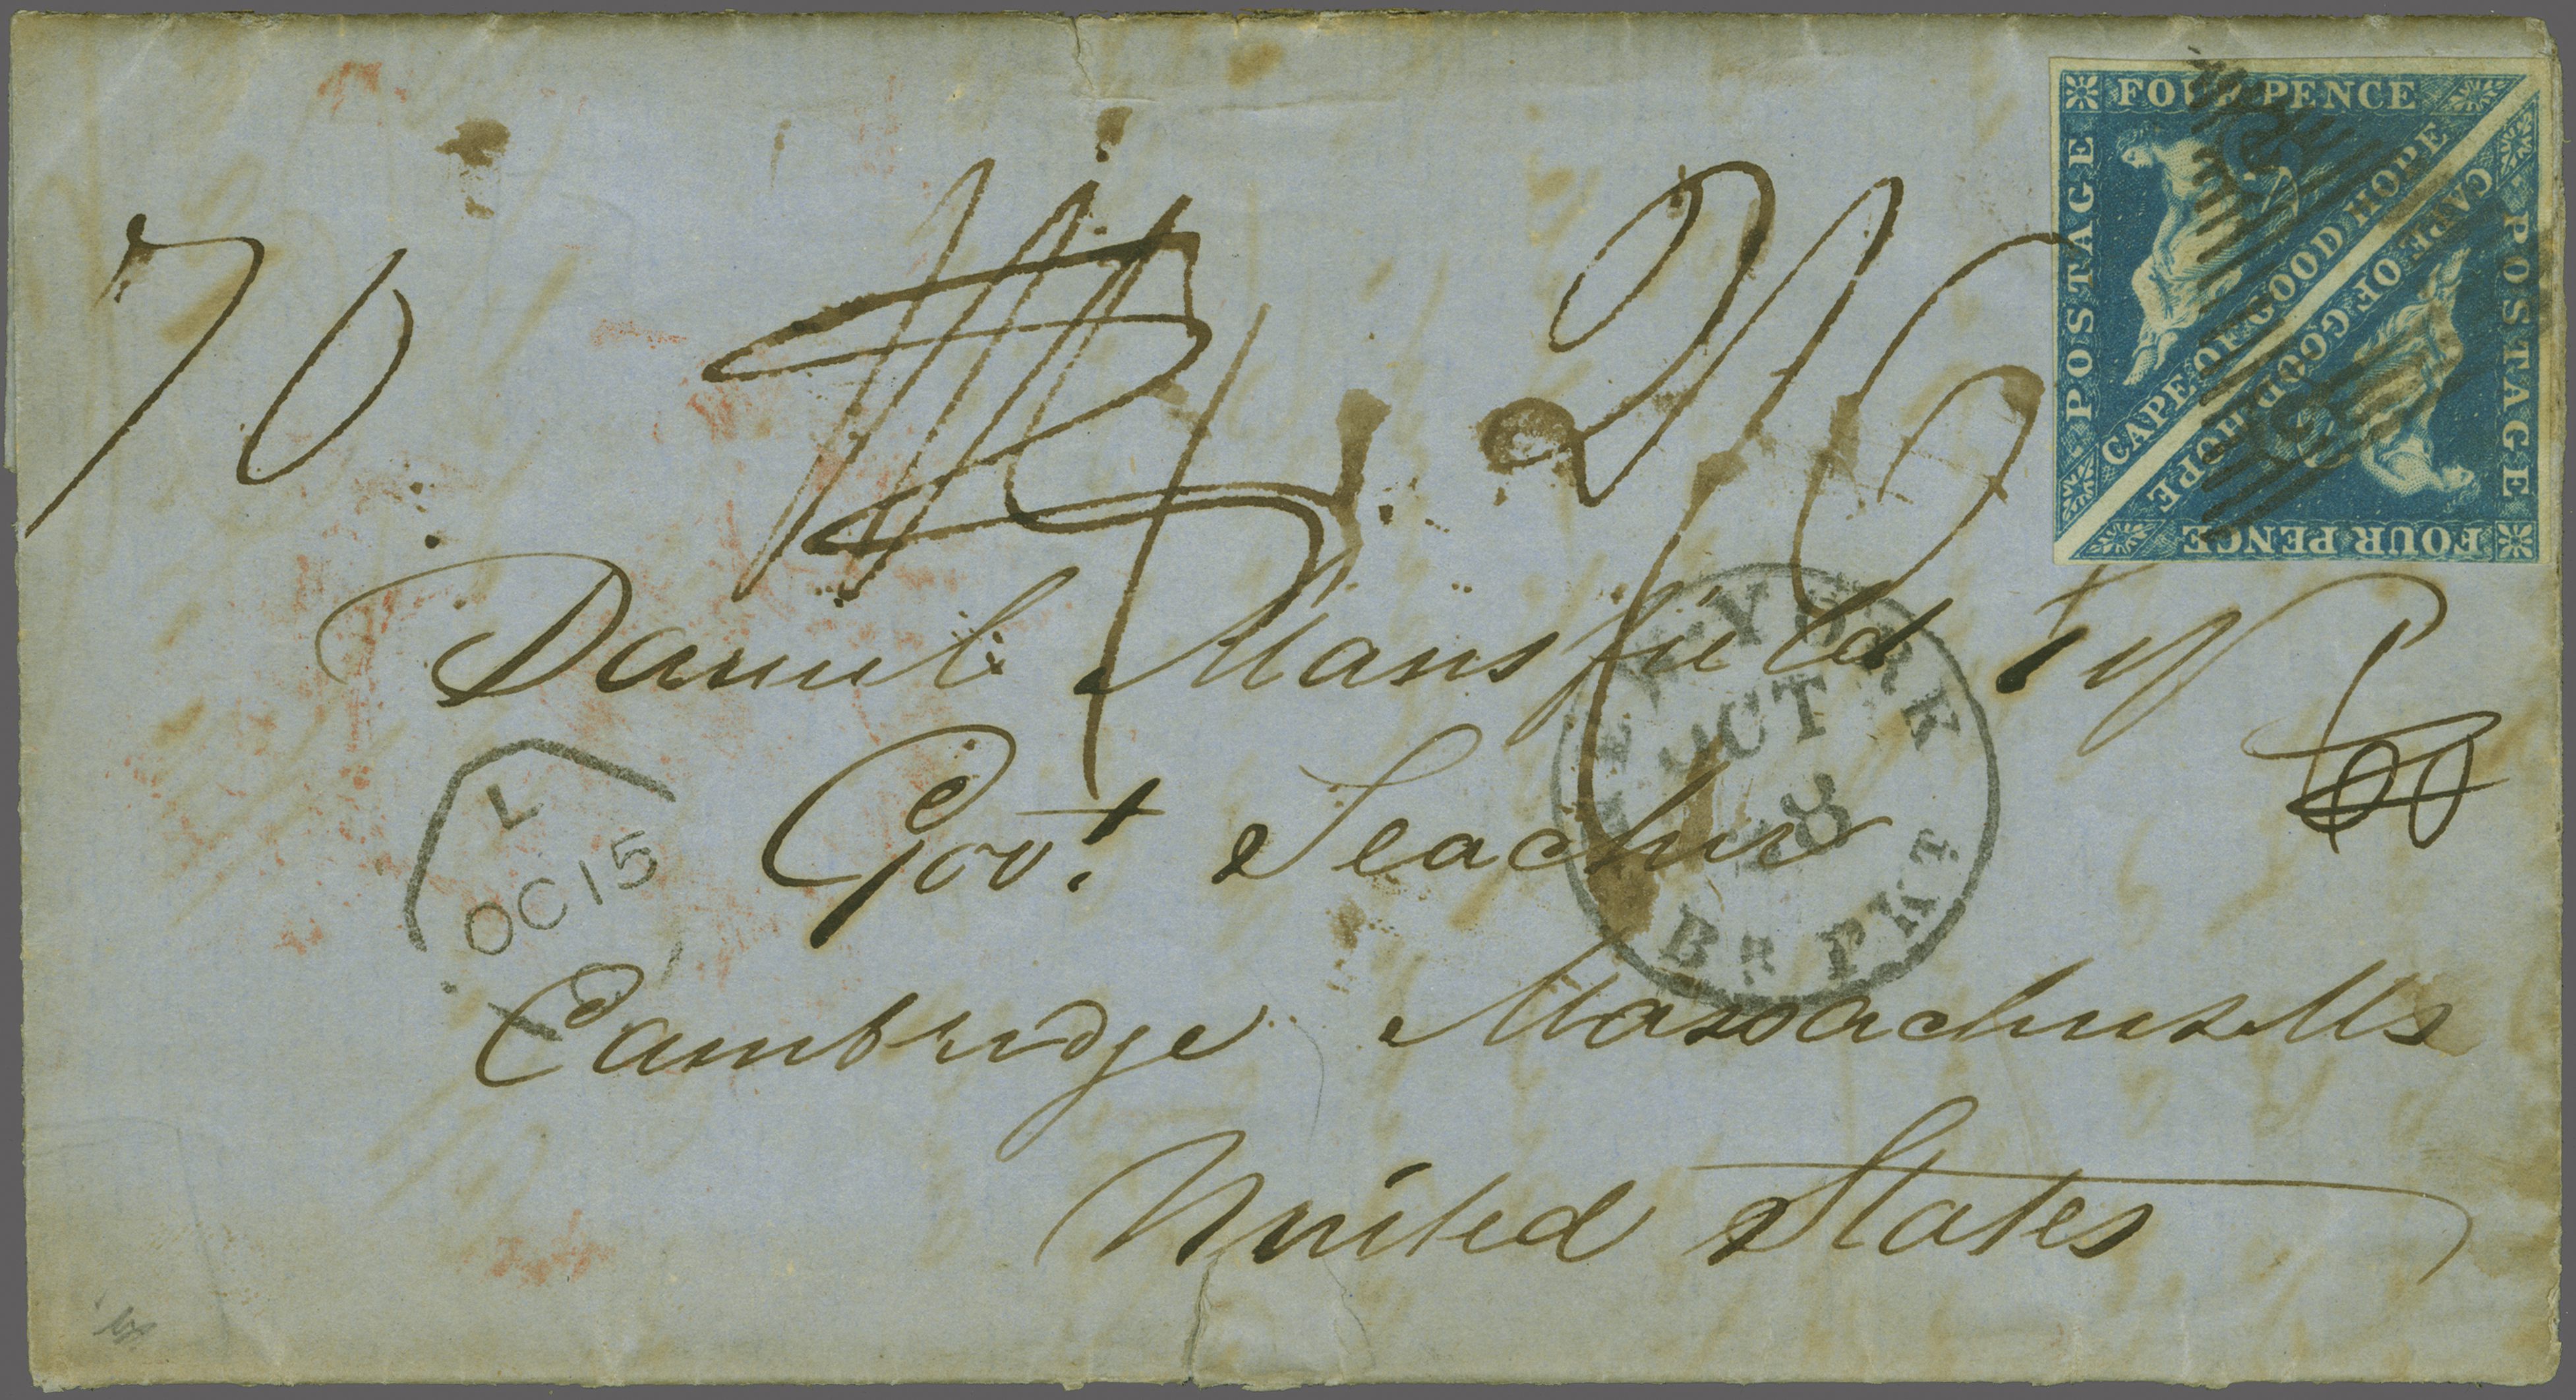 FOUR PENCE
POSTAGE
CAPE OF GOOD HOPE
CAPE OF GOOD HOPE
POSTAGE
FOUR PENCE
70
2/6
Daniel Mansfield
Govt. Teacher
Cambridge Massachusetts
United States
L
OC 15
NEW YORK
OCT
28
BR PKT